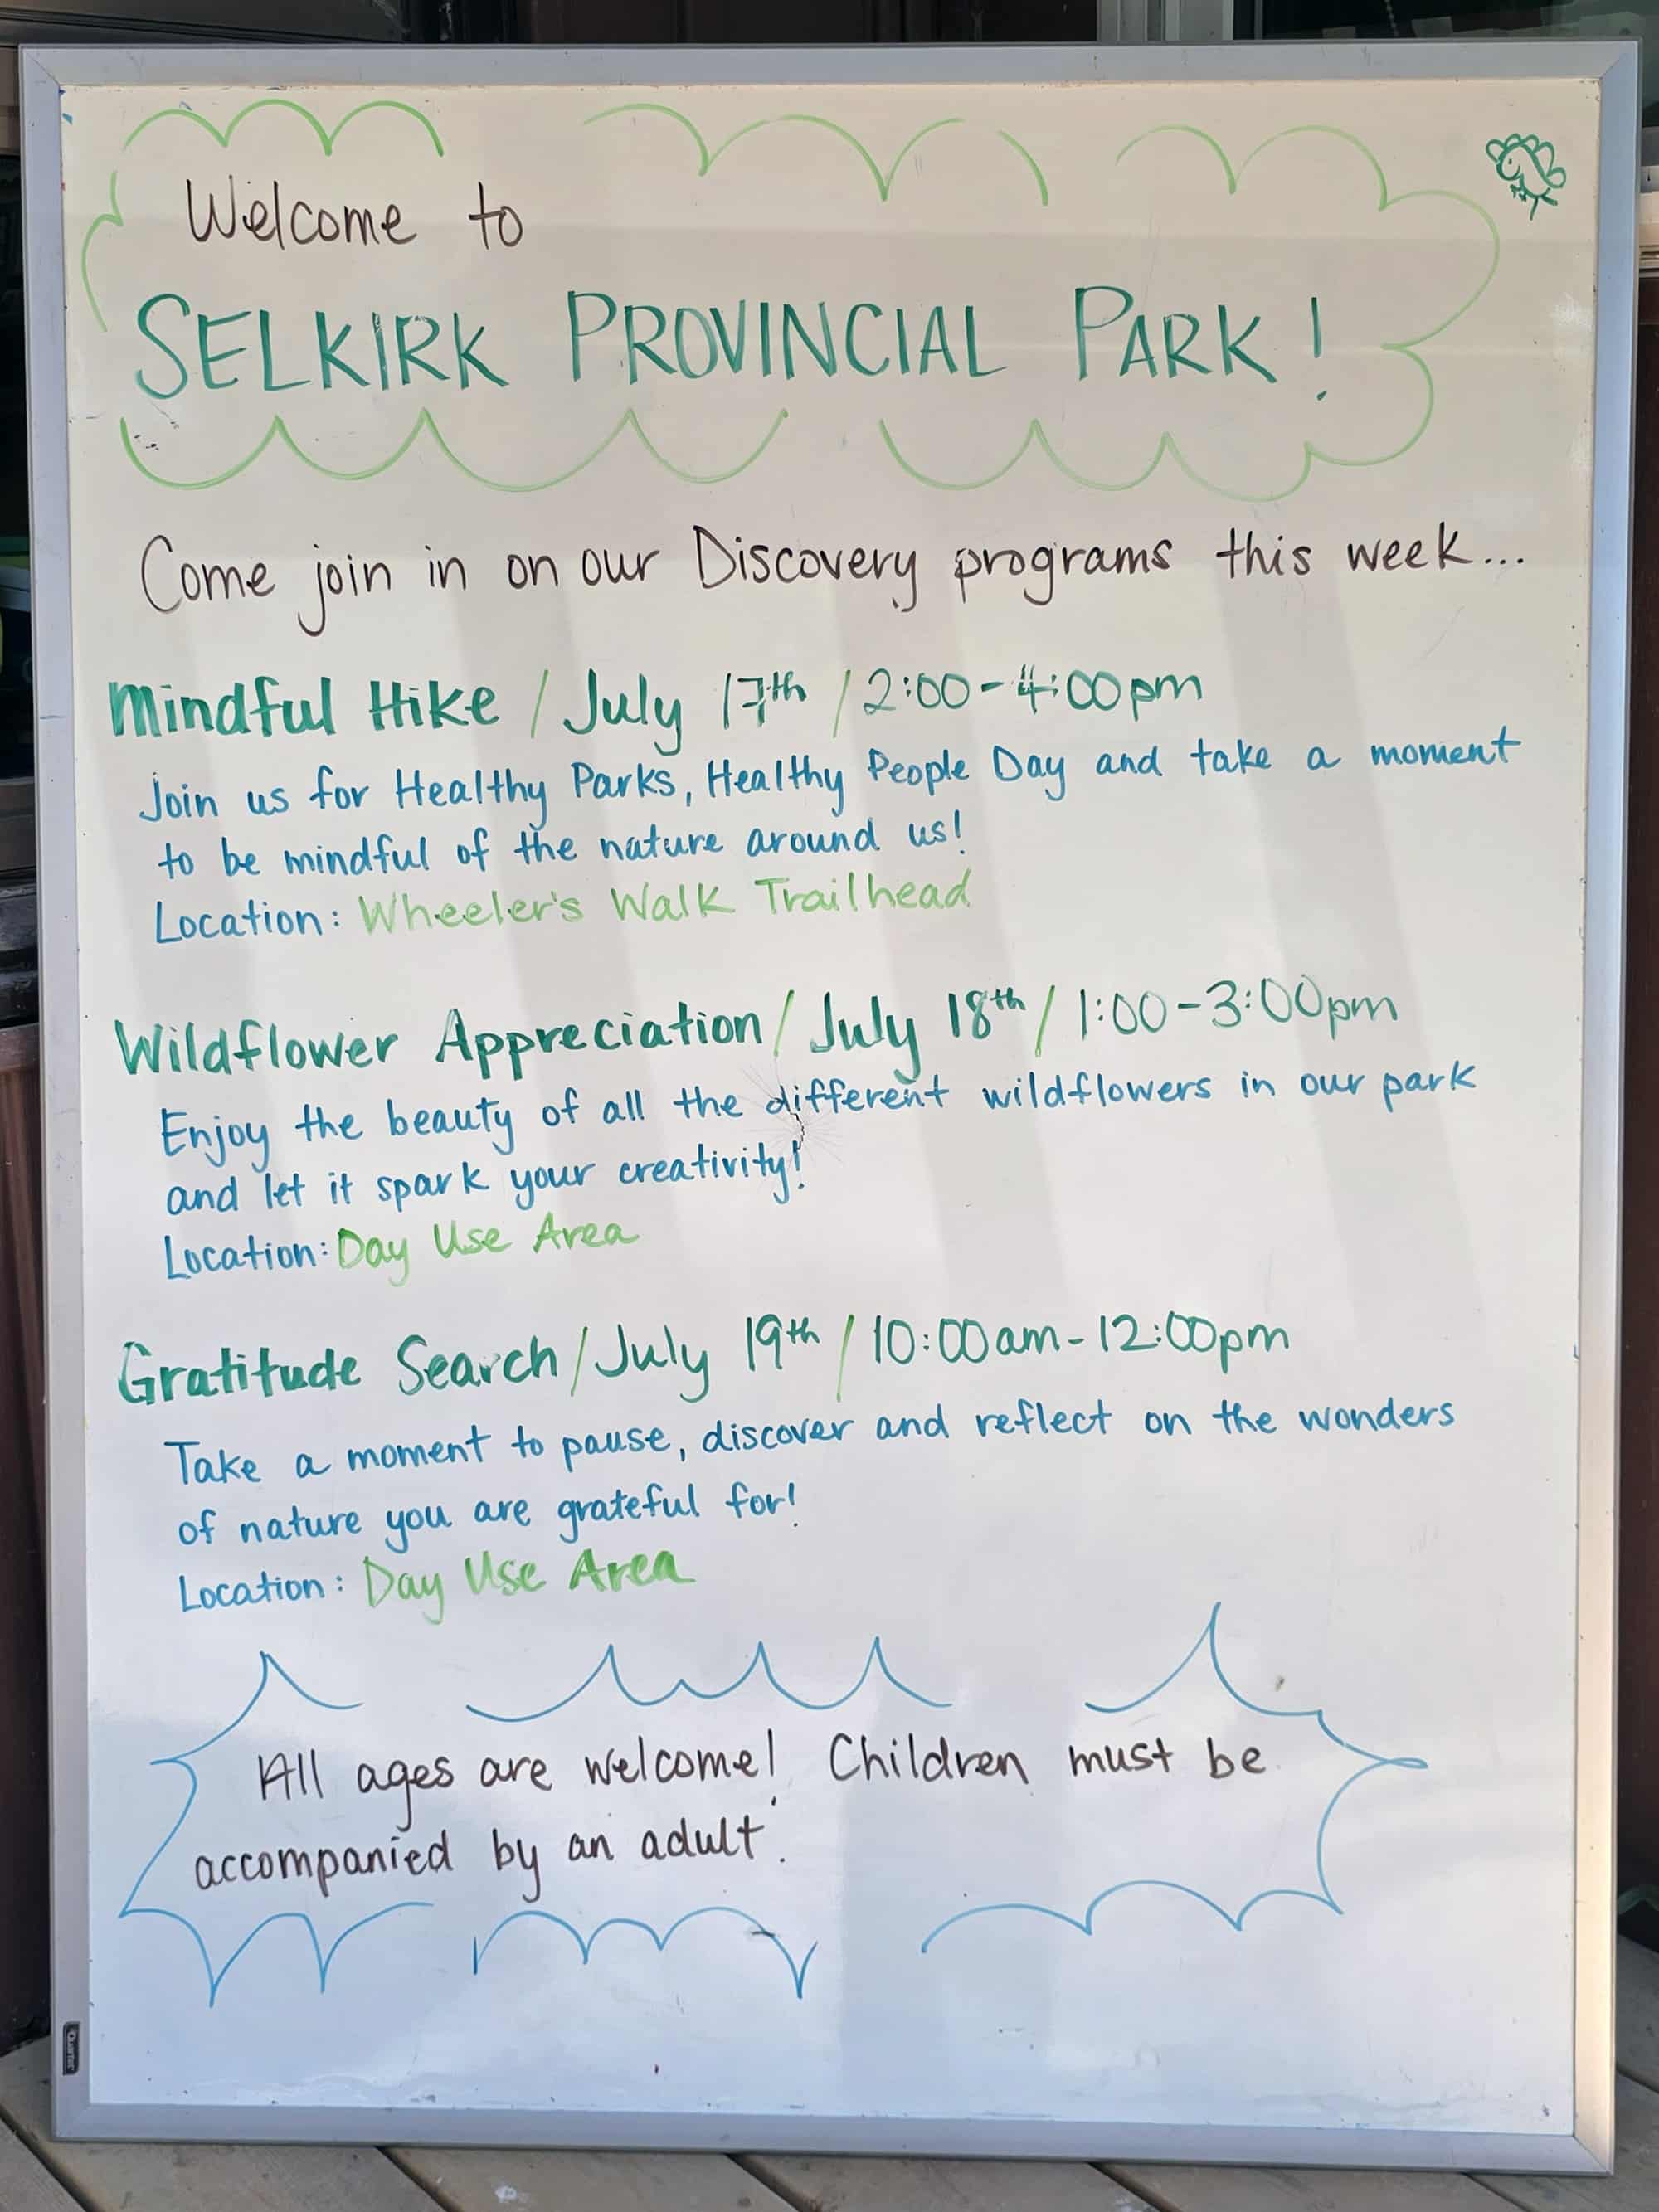 Welcome to
SELKIRK PROVINCIAL PARK!
Come join in on our Discovery programs this week...
Mindful Hike / July 17th / 2:00-4:00pm
Join us for Healthy Parks, Healthy People Day and take a moment
to be mindful of the nature around us!
Location: Wheeler's Walk Trailhead
Wildflower Appreciation / July 18th / 1:00-3:00pm
Enjoy the beauty of all the different wildflowers in our park
and let it spark your creativity!
Location: Day Use Area
Gratitude Search / July 19th / 10:00am-12:00pm
Take a moment to pause, discover and reflect on the wonders
of nature you are grateful for!
Location: Day Use Area
All ages are welcome! Children must be
accompanied by an adult.
Quartet